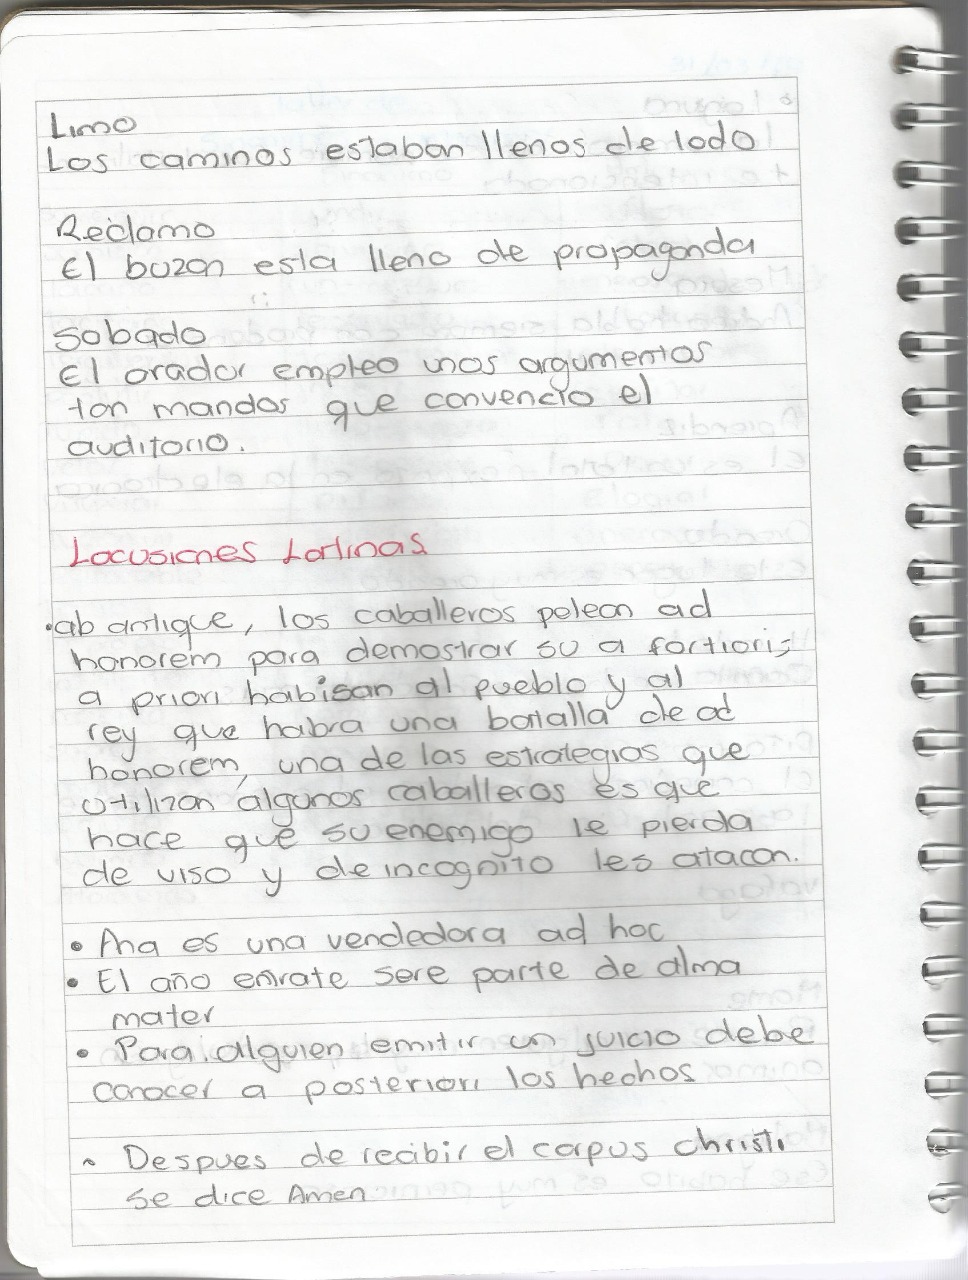 Limo
Los caminos estaban llenos de lodo
Reclamo
El buzon esta lleno de propaganda
Sobado
El orador empleo unos argumentos
tan mandos que convencio el
auditorio.
Locusiones Latinas
• ab antique, los caballeros pelean ad
honorem para demostrar su a fortioris
a priori habisan al pueblo y al
rey que habra una batalla de ad
honorem, una de las estrategias que
utilizan algunos caballeros es que
hace que su enemigo le pierda
de viso y de incognito les atacan.
• Ana es una vendedora ad hoc
• El año entrate sere parte de alma
mater
• Para alguien emitir un juicio debe
conocer a posteriori los hechos
~ Despues de recibir el corpus christi
se dice Amen